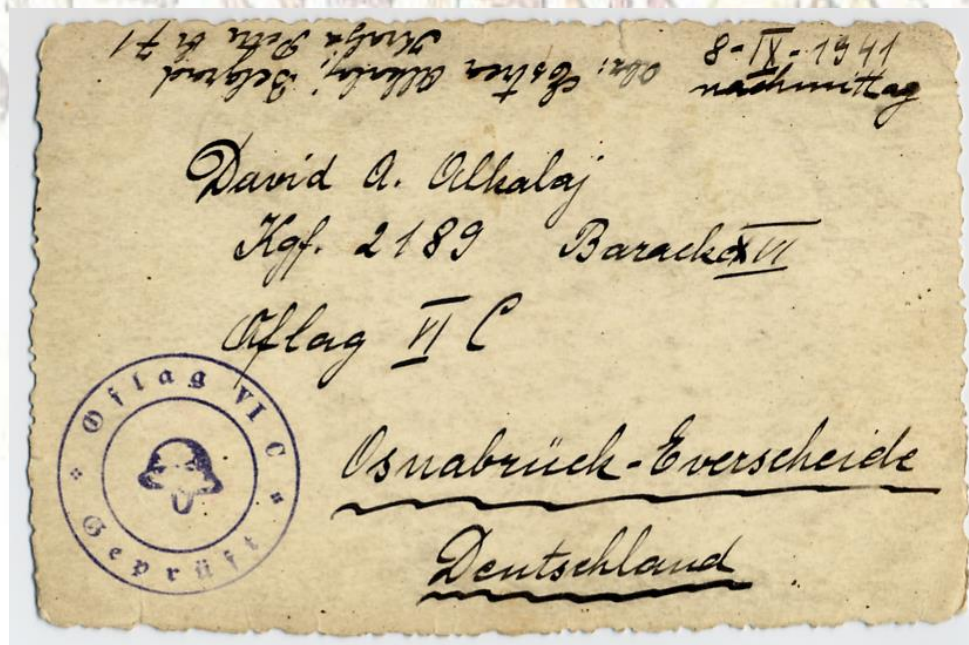 8-IX-1941
nachmittag
Abs: Estrea Alkalaj, Belgrad
Kralja Petra Nr 71
David A. Alkalaj
Kgf. 2189 Baracke XVI
Oflag VI C
Osnabrück-Everscheide
Deutschland
Oflag VI C
Geprüft